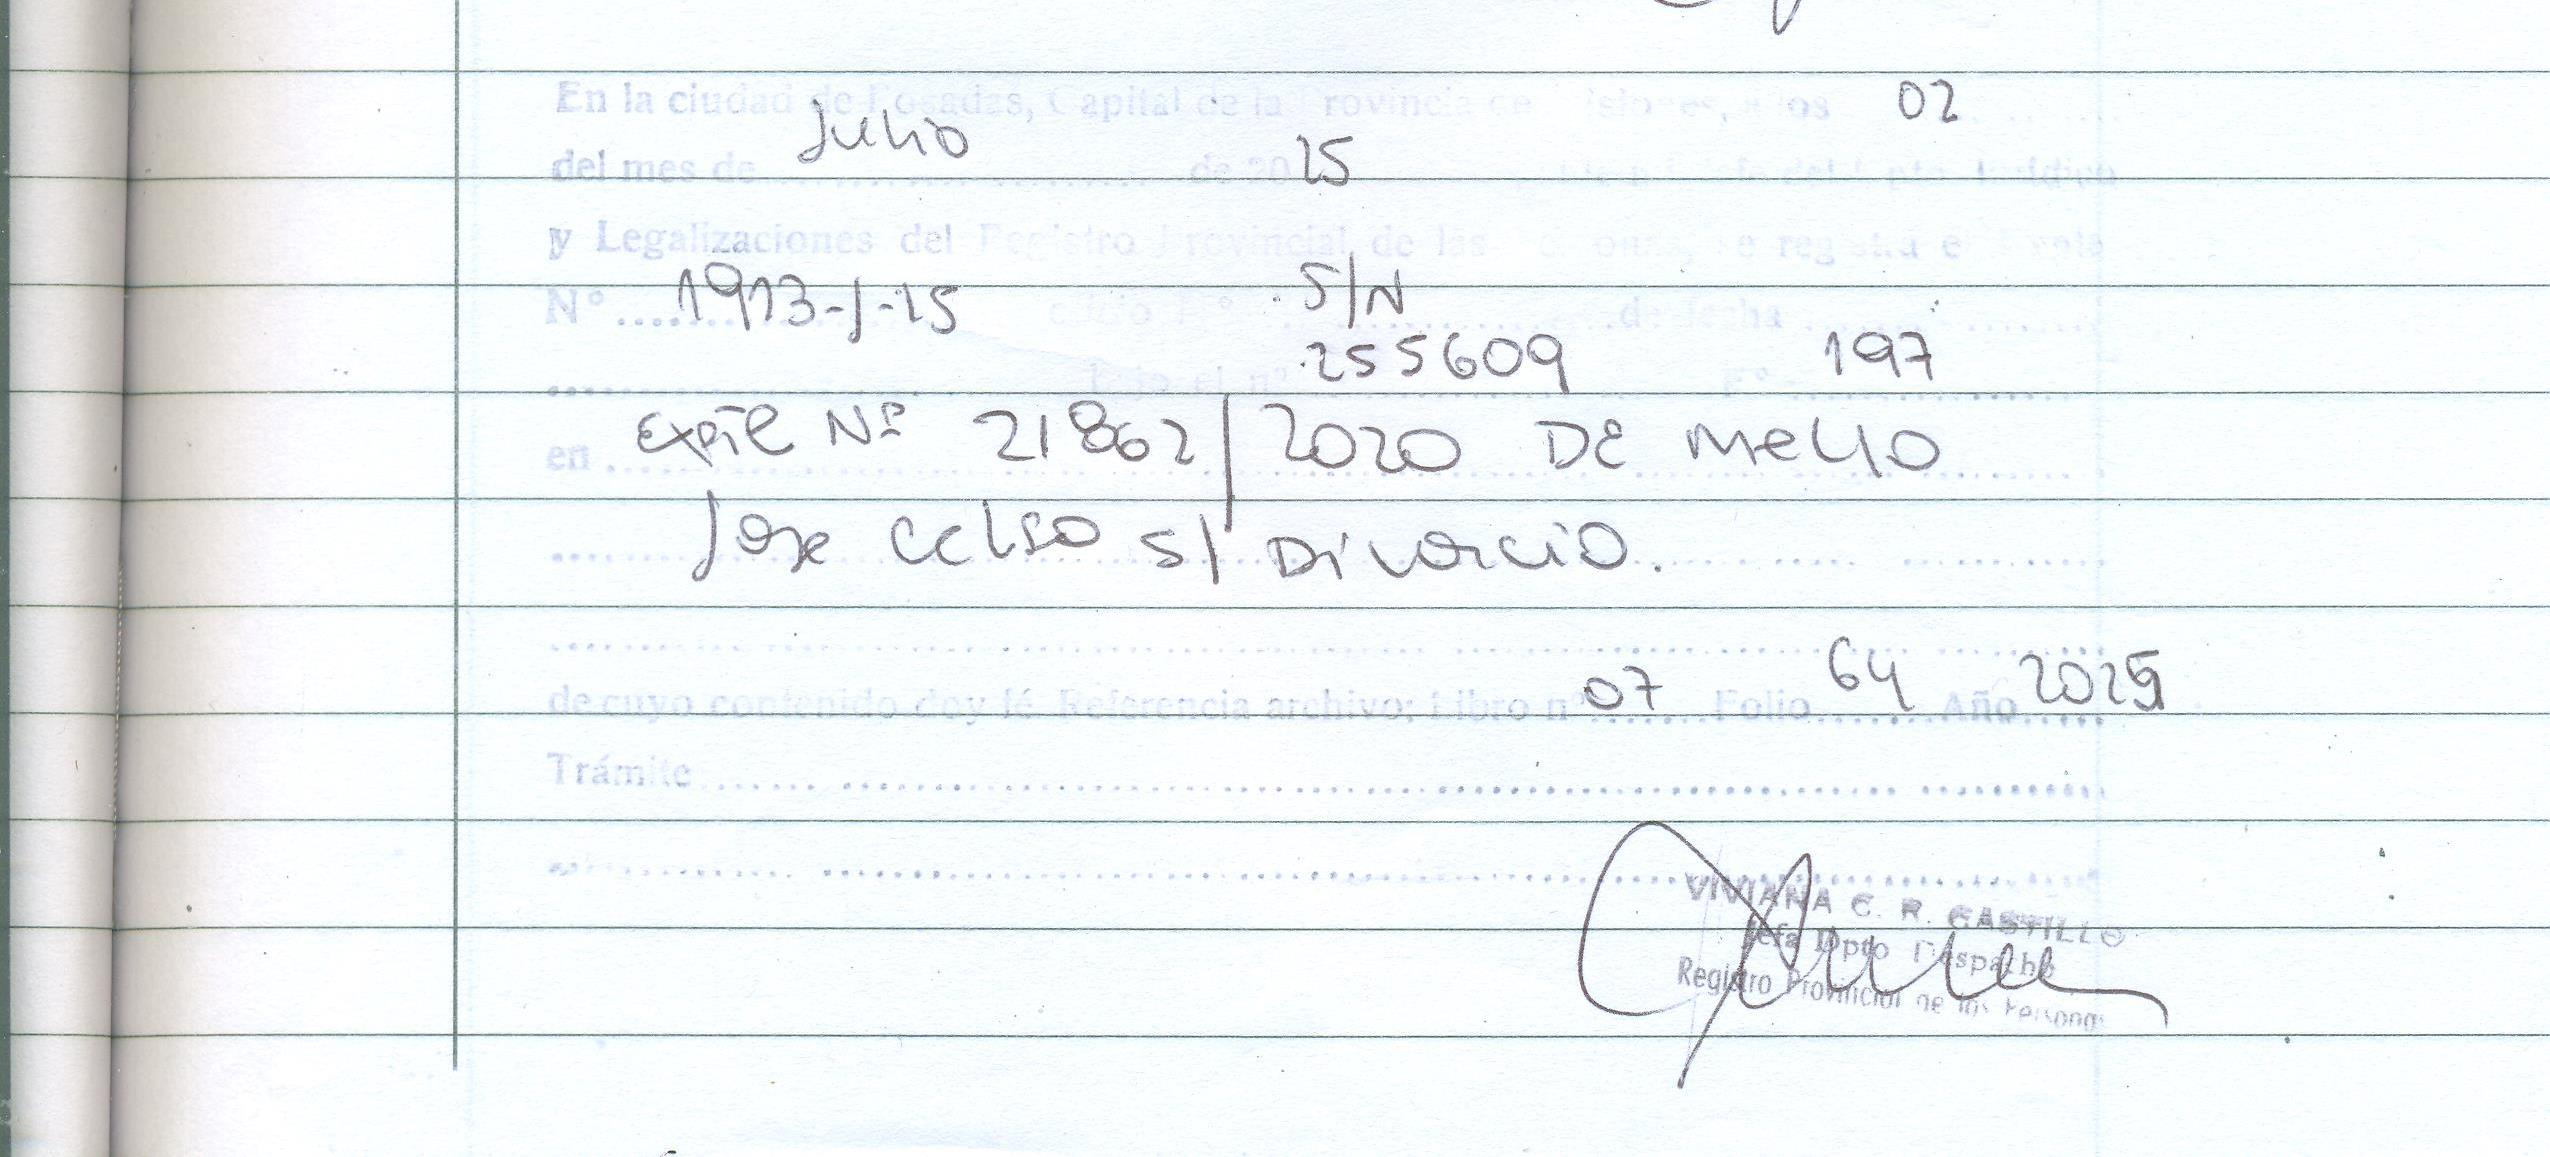 En la ciudad de Posadas, Capital de la Provincia de Misiones, a los 02
del mes de Julio de 20 25 del Dpto. Jurídico
y Legalizaciones del Registro Provincial de las Personas, se registra el
N° 1913-J-25 oficio N° S/N de fecha
bajo el n° 255609 F° 197
en Expte Nº 21862/2020 DE Mello
Jose Celso s/ Divorcio.
de cuyo contenido doy fé. Referencia archivo: Libro nº 07 Folio 64 Año 2025
Trámite
VIVIANA C. R. CASTILLO
Jefa Dpto Despacho
Registro Provincial de las Personas